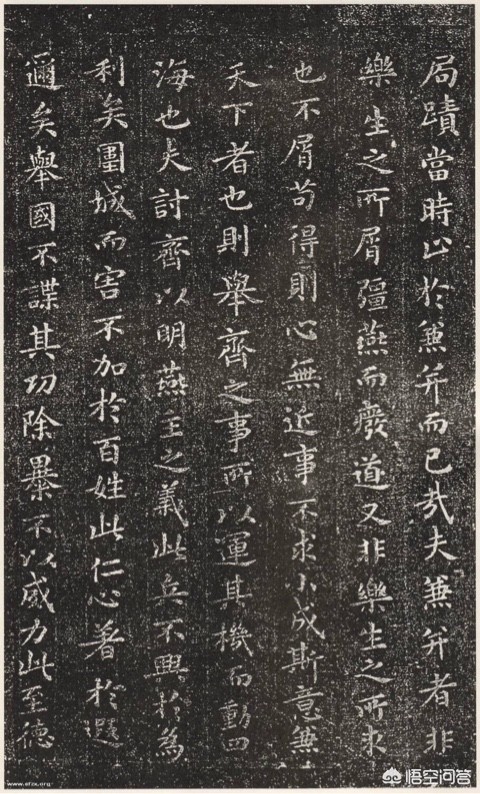 局蹟當時止於兼并而已哉夫兼并者非
樂生之所屑彊燕而廢道又非樂生之所求
也不屑苟得則心無近事不求小成斯意兼
天下者也則舉齊之事所以運其機而動四
海也夫討齊以明燕主之義此兵不興於為
利矣圍城而害不加於百姓此仁心著於遐
邇矣舉國不謀其功除暴不以威力此至德
悟空问答